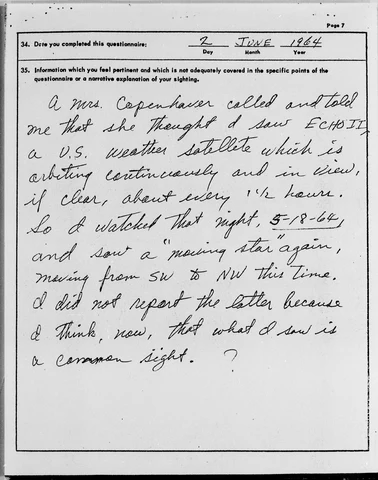 Page 7
34. Date you completed this questionnaire: 2 JUNE 1964
Day Month Year
35. Information which you feel pertinent and which is not adequately covered in the specific points of the
questionnaire or a narrative explanation of your sighting.
A Mrs. Copenhaver called and told
me that she thought I saw ECHO II,
a U.S. weather satellite which is
orbiting continuously and in view,
if clear, about every 1 1/2 hours.
So I watched that night, 5-18-64,
and saw a "moving star" again,
moving from SW to NW this time.
I did not report the latter because
I think, now, that what I saw is
a common sight. ?